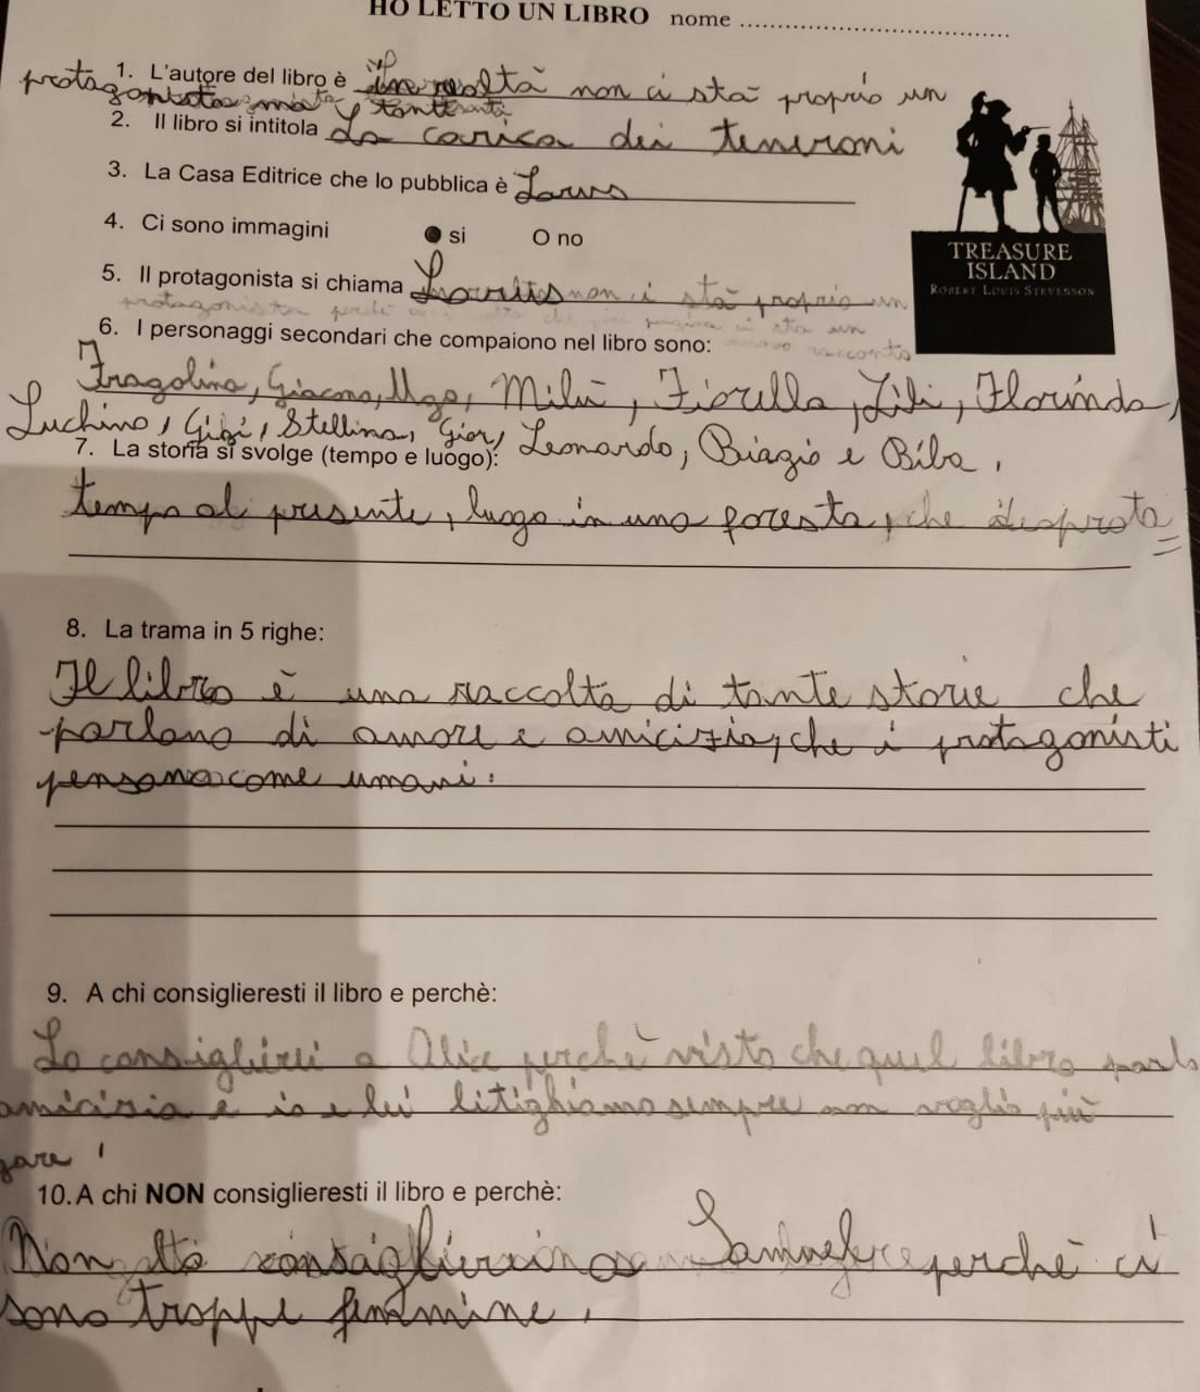 HO LETTO UN LIBRO nome ....................................
1. L'autore del libro è in realtà non ci sta proprio un
protagonista ma tanti
2. Il libro si intitola La carica dei teneroni
3. La Casa Editrice che lo pubblica è Larus
4. Ci sono immagini si O no
5. Il protagonista si chiama non ci stà proprio un
protagonista perché ogni pagina ci sta un
nuovo racconto
6. I personaggi secondari che compaiono nel libro sono:
Fragolina, Giacomo, Ugo, Milù, Fiorella, Lili, Florinda,
Luchino, Gigi, Stellina, Gior, Leonardo, Biagio e Biba.
7. La storia si svolge (tempo e luogo):
tempo al presente, luogo in una foresta, che
TREASURE
ISLAND
ROBERT LOUIS STEVENSON
8. La trama in 5 righe:
Il libro è una raccolta di tante storie che
parlano di amore e amicizia, che i protagonisti
pensano come umani.
9. A chi consiglieresti il libro e perchè:
Lo consiglierei a Alice perchè visto che quel libro parla
amicizia e io e lei litighiamo sempre non voglio più
gare
10. A chi NON consiglieresti il libro e perchè:
Non lo consiglierei a Samuele perchè ci
sono troppe femmine.